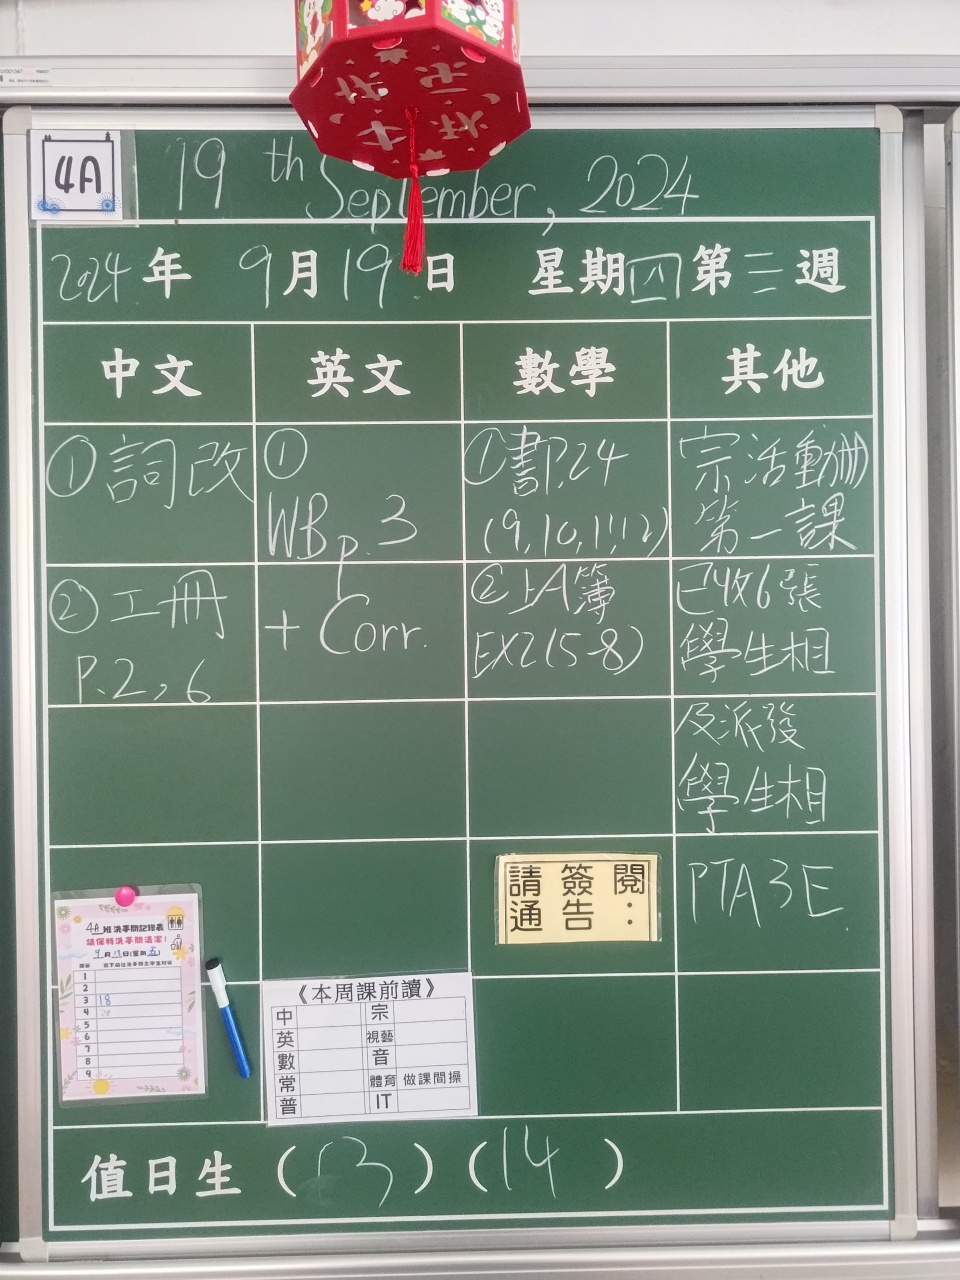 4A
19th September, 2024
2024年 9月19日 星期四 第三週
中文 英文 數學 其他
①詞改
②工冊
P.2,6
①
WB p.3
+ Corr.
①書P.24
(9,10,11,12)
②上A簿
EX2(5-8)
宗活動冊
第一課
已收6張
學生相
及派發
學生相
請簽閱
通告：
PTA3E
4A班洗手間記錄表
請保持洗手間清潔！
9月13日(星期五)
1
2
3 18
4
5
6
7
8
9
《本周課前讀》
中 宗
英 視藝
數 音
常 體育 做課間操
普 IT
值日生 (13) (14)